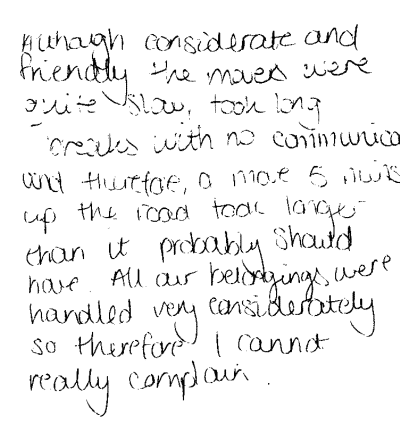 Although considerate and
friendly the movers were
quite slow, took long
breaks with no communica
and therefore, a move 5 mins
up the road took longer
than it probably should
have. All our belongings were
handled very considerately
so therefore I cannot
really complain.